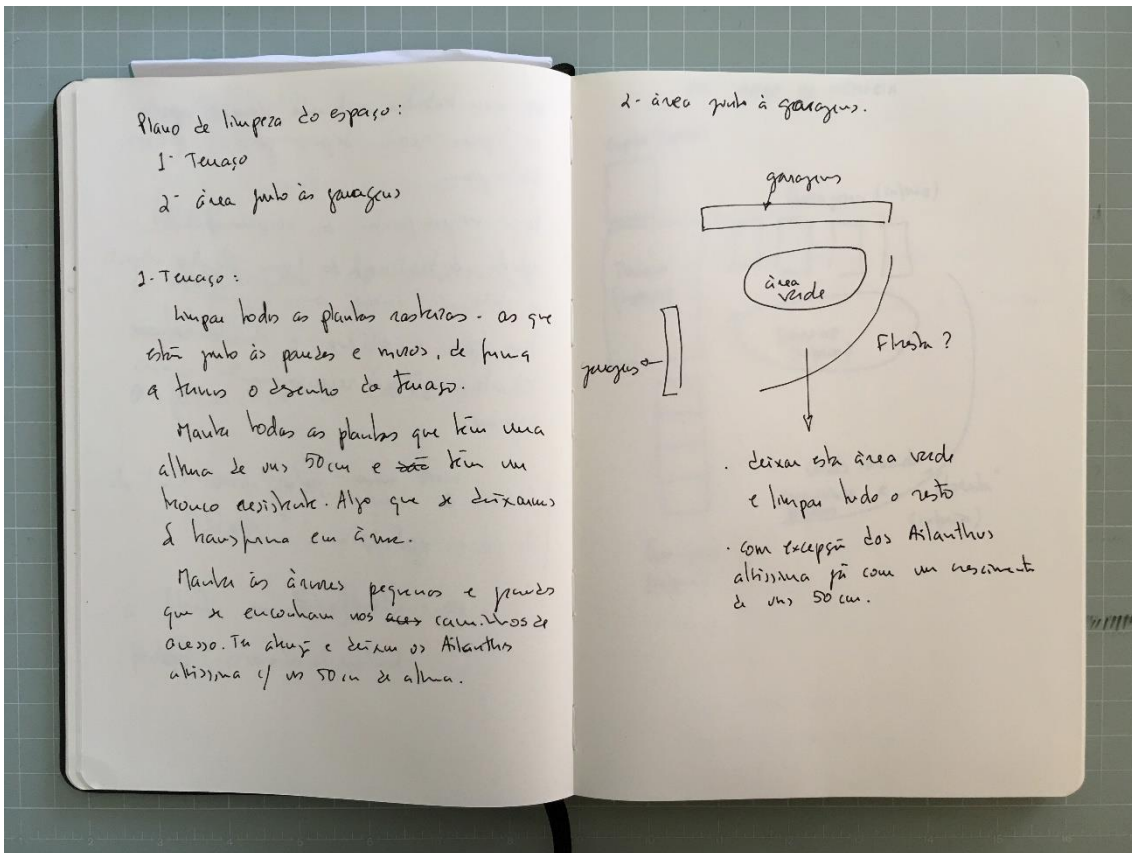 Plano de limpeza do espaço:
1- Terraço
2- área junto às garagens
1- Terraço:
Limpar todas as plantas rasteiras - as que
estão junto às paredes e muros, de forma
a termos o desenho do terraço.
Manter todas as plantas que têm uma
altura de uns 50cm e são têm um
tronco resistente. Algo que se deixarmos
se transforma em árvore.
Manter as árvores pequenas e grandes
que se encontram nos caminhos de
acesso. Ter atenção e deixar os Ailanthus
altissima c/ uns 50cm de altura.
2- área junto à garagens.
garagens
área
verde
garagens
Floresta?
. deixar esta área verde
e limpar tudo o resto
. com excepção dos Ailanthus
altissima já com um crescimento
de uns 50 cm.